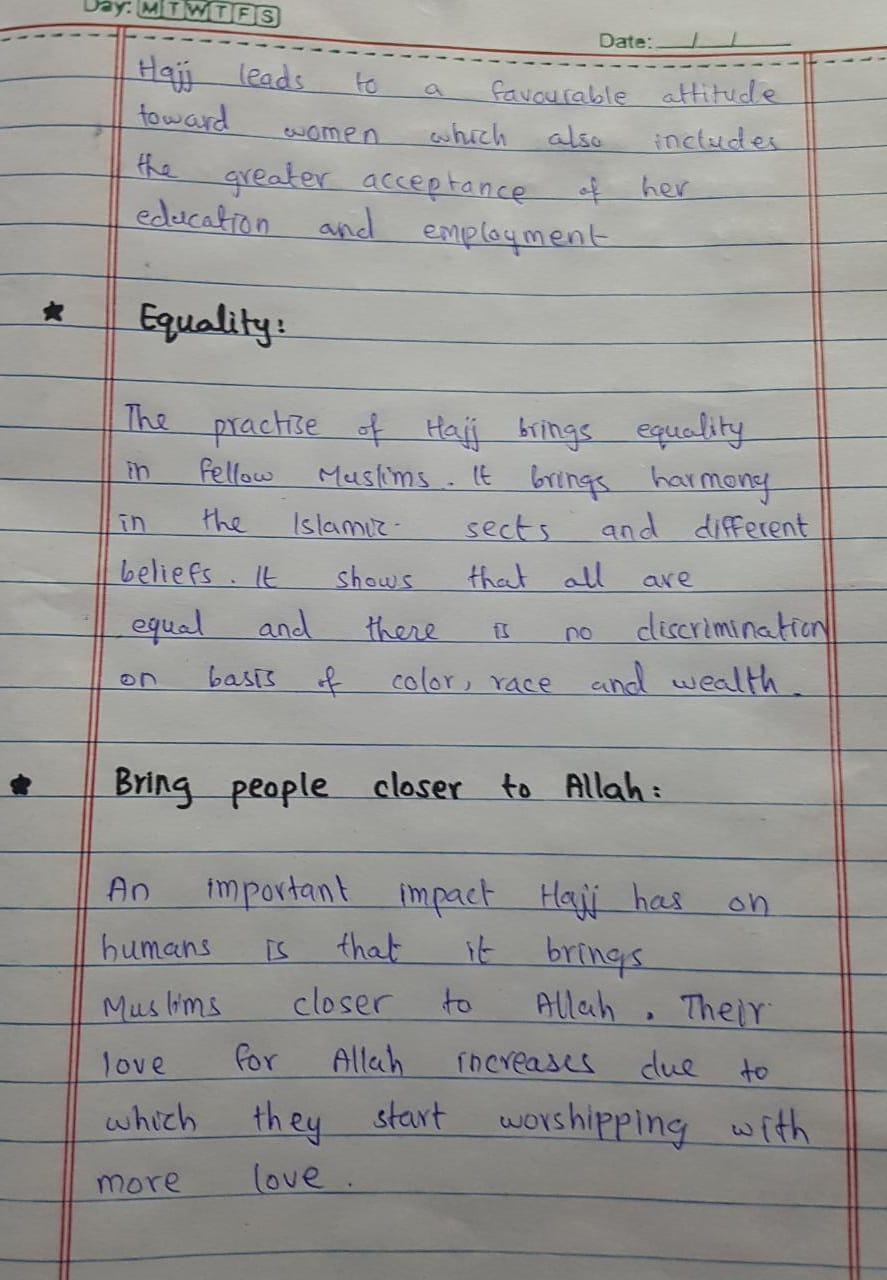 Day: M T W T F S
Date: / /
Hajj leads to a favourable attitude
toward women which also includes
the greater acceptance of her
education and employment
★ Equality:
The practise of Hajj brings equality
in fellow Muslims. It brings harmony
in the Islamic sects and different
beliefs. It shows that all are
equal and there is no discrimination
on basis of color, race and wealth.
★ Bring people closer to Allah:
An important impact Hajj has on
humans is that it brings
Muslims closer to Allah. Their
love for Allah increases due to
which they start worshipping with
more love.